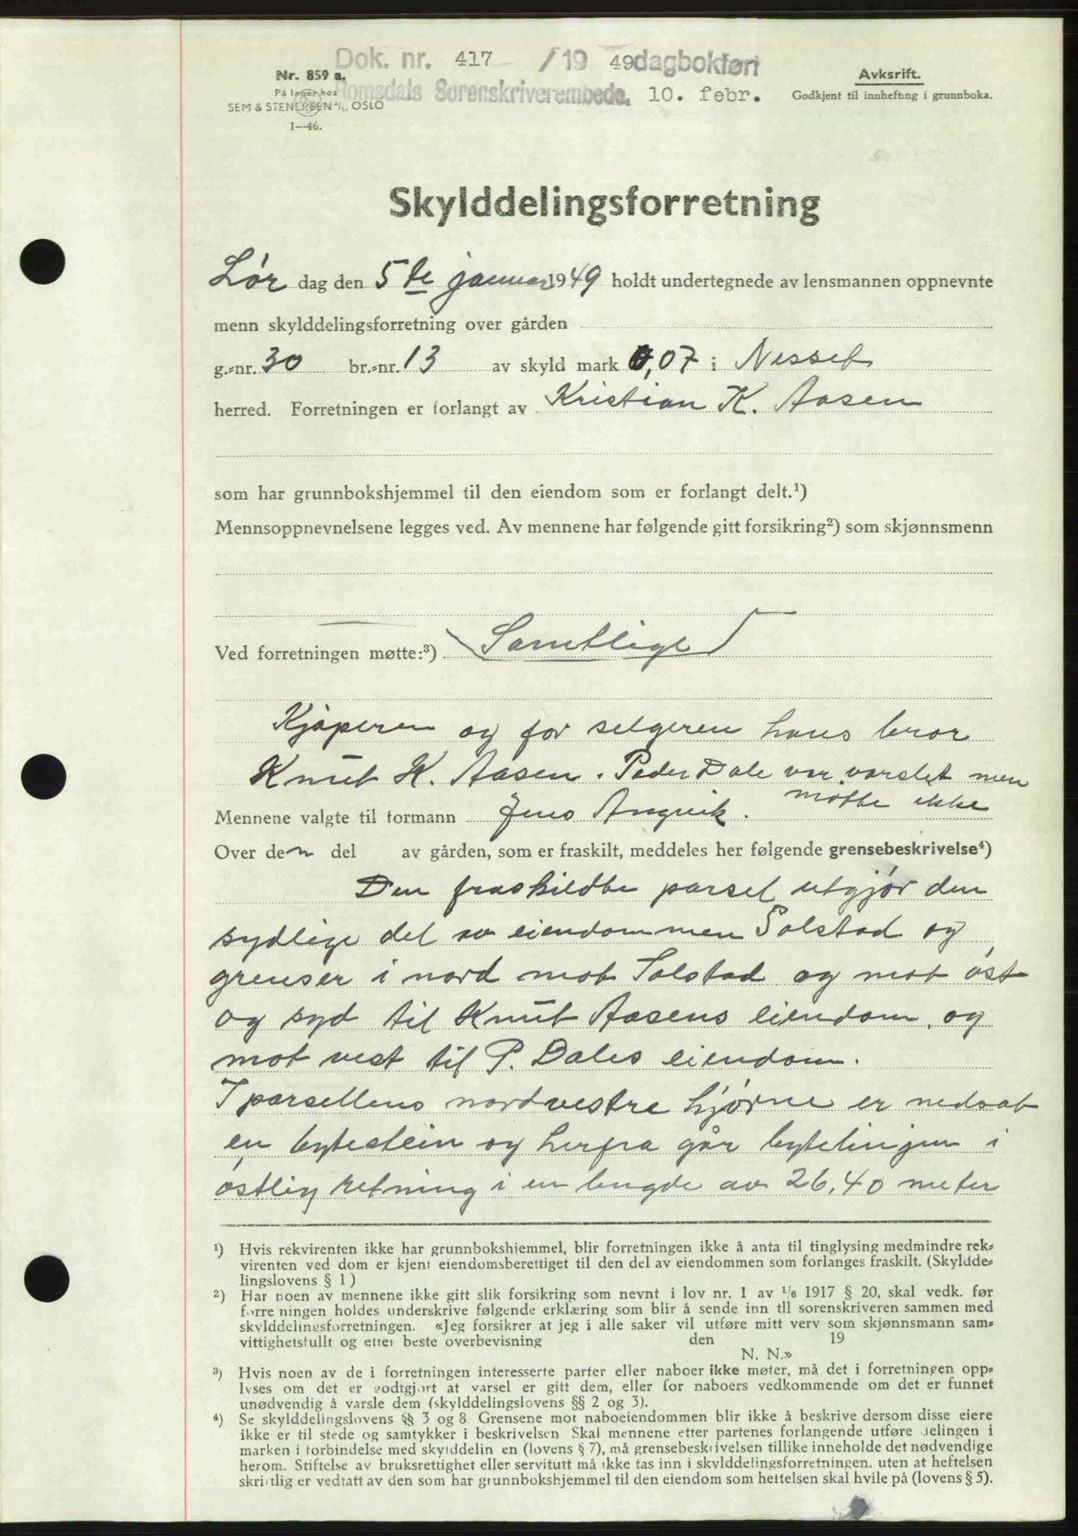 Dok. nr. 417 /19 49 dagbokført
Romsdals Sorenskriverembede, 10. febr.
Nr. 859 a.
På lager hos
SEM & STENERSEN A/S, OSLO
1—46.
Avskrift.
Godkjent til innhefting i grunnboka.
Skylddelingsforretning
Lør dag den 5te januar 1949 holdt undertegnede av lensmannen oppnevnte
menn skylddelingsforretning over gården
g.-nr. 30 br.-nr. 13 av skyld mark 0,07 i Nesset
herred. Forretningen er forlangt av Kristian K. Aasen
som har grunnbokshjemmel til den eiendom som er forlangt delt.¹)
Mennsoppnevnelsene legges ved. Av mennene har følgende gitt forsikring²) som skjønnsmenn
Samtlige
Ved forretningen møtte:³)
Kjøperen og for selgeren hans bror
Knut K. Aasen. Peder Dale var varslet men
møtte ikke
Mennene valgte til formann Jens Angvik.
Over den del av gården, som er fraskilt, meddeles her følgende grensebeskrivelse⁴)
Den fraskildte parsel utgjør den
sydlige del av eiendommen Solstad og
grenser i nord mot Solstad og mot øst
og syd til Knut Aasens eiendom, og
mot vest til P. Dales eiendom.
I parsellens nordvestre hjørne er nedsat
en bytestein og herfra går bytelinjen i
østlig retning i en lengde av 26,40 meter
¹) Hvis rekvirenten ikke har grunnbokshjemmel, blir forretningen ikke å anta til tinglysing medmindre rek-
virenten ved dom er kjent eiendomsberettiget til den del av eiendommen som forlanges fraskilt. (Skyldde-
lingslovens § 1)
²) Har noen av mennene ikke gitt slik forsikring som nevnt i lov nr. 1 av ¹/₆ 1917 § 20, skal vedk. før
forretningen holdes underskrive følgende erklæring som blir å sende inn til sorenskriveren sammen med
skylddelingsforretningen. «Jeg forsikrer at jeg i alle saker vil utføre mitt verv som skjønnsmann sam-
vittighetsfullt og etter beste overbevisning den 19
N. N.»
³) Hvis noen av de i forretningen interesserte parter eller naboer ikke møter, må det i forretningen opp-
lyses om det er godtgjort at varsel er gitt dem, eller for naboers vedkommende om det er funnet
unødvendig å varsle dem (skylddelingslovens §§ 2 og 3).
⁴) Se skylddelingslovens §§ 3 og 8. Grensene mot naboeiendommen blir ikke å beskrive dersom disse eiere
ikke er til stede og samtykker i beskrivelsen Skal mennene etter partenes forlangende utføre delingen i
marken i forbindelse med skylddelingen (lovens § 7), må grensebeskrivelsen tillike inneholde det nødvendige
herom. Stiftelse av bruksrettighet eller servitutt må ikke tas inn i skylddelingsforretningen, uten at heftelsen
skriftlig er vedtatt av den som har grunnbokshjemmel til den eiendom som heftelsen skal hvile på (lovens § 5).